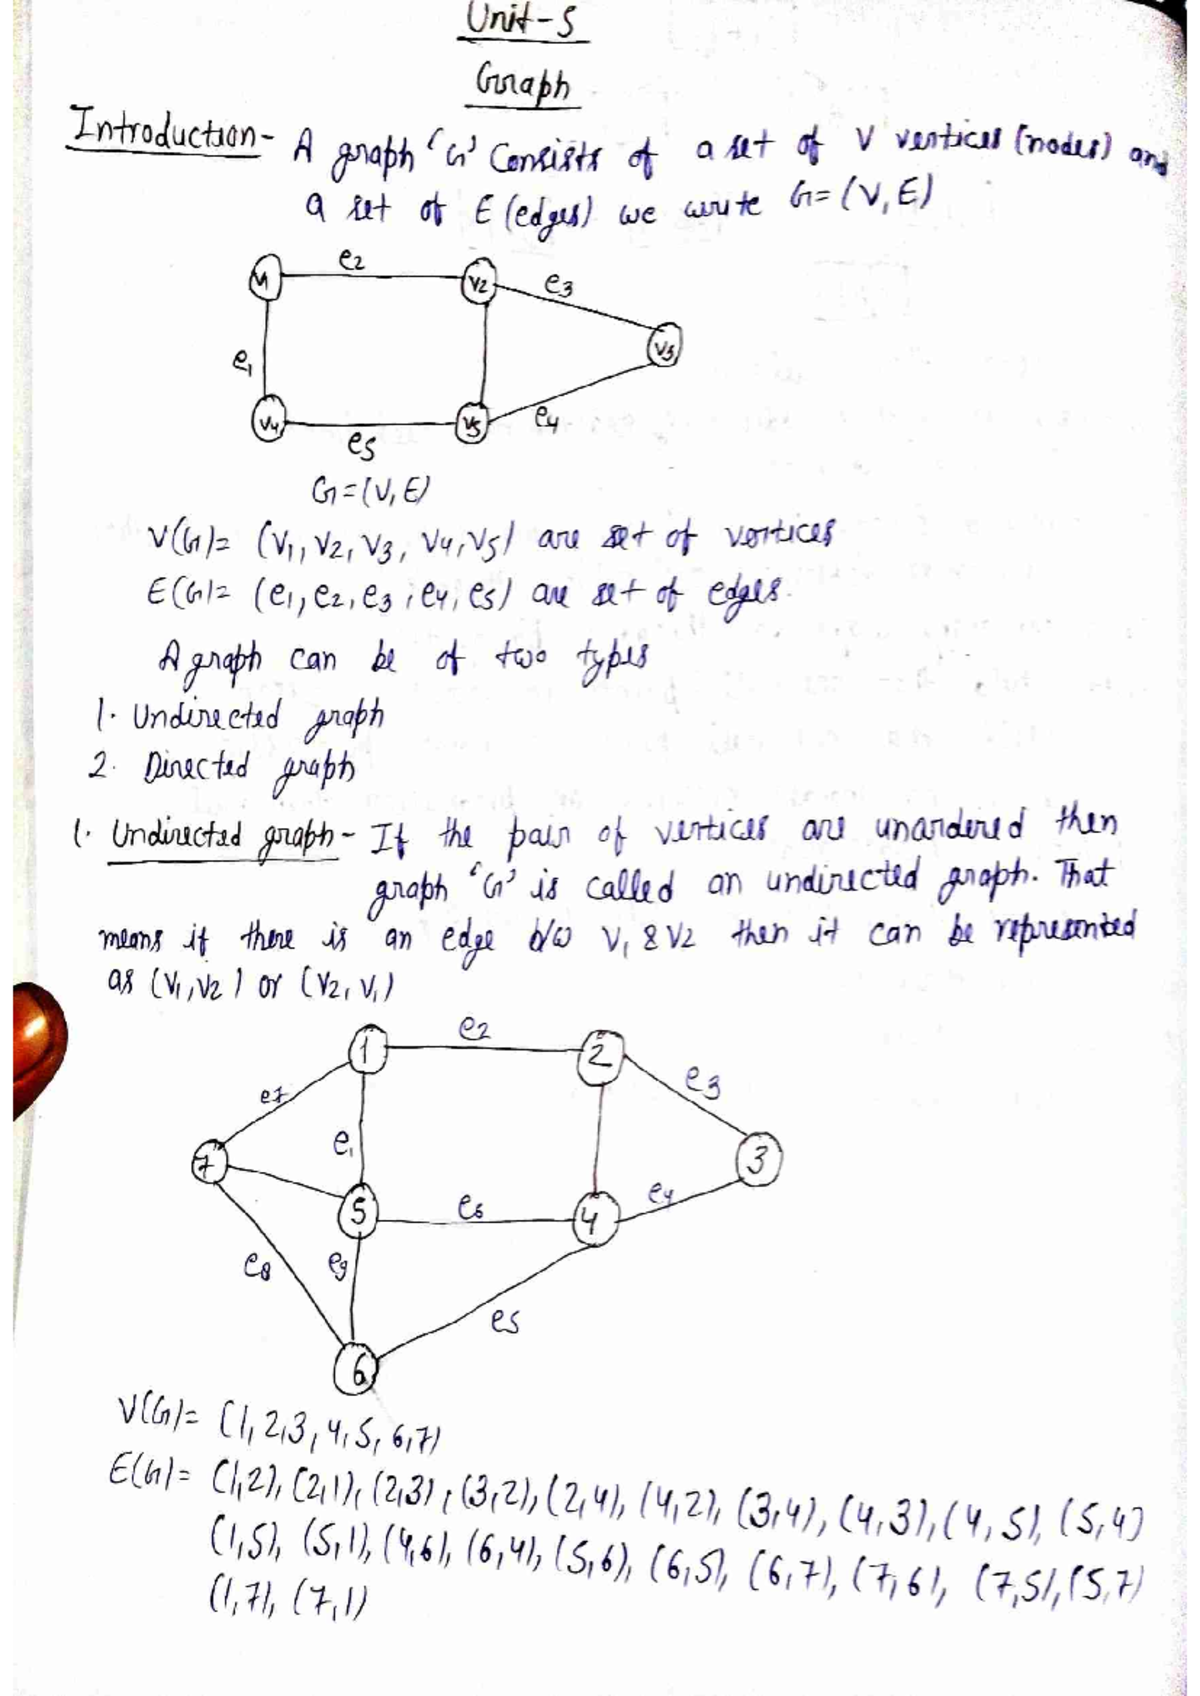 Unit-5
Graph
Introduction- A graph 'G' Consists of a set of V vertices (nodes) and
a set of E (edges) we write G=(V,E)
e2
v1
v2
e3
e1
v3
v4
v5
e4
e5
G=(V,E)
V(G)= (V1, V2, V3, V4, V5) are set of vortices
E(G)= (e1, e2, e3, e4, e5) are set of edges.
A graph can be of two types
1. Undirected graph
2. Directed graph
1. Undirected graph- If the pair of vertices are unardered then
graph 'G' is called an undirected graph. That
means if there is an edge b/w V1 & V2 then it can be represented
as (V1, V2) or (V2, V1)
e2
1
2
e7
e3
e1
7
3
5
e6
4
e4
e8
e9
e5
6
V(G)= (1,2,3,4,5,6,7)
E(G)= (1,2), (2,1), (2,3), (3,2), (2,4), (4,2), (3,4), (4,3), (4,5), (5,4)
(1,5), (5,1), (4,6), (6,4), (5,6), (6,5), (6,7), (7,6), (7,5), (5,7)
(1,7), (7,1)